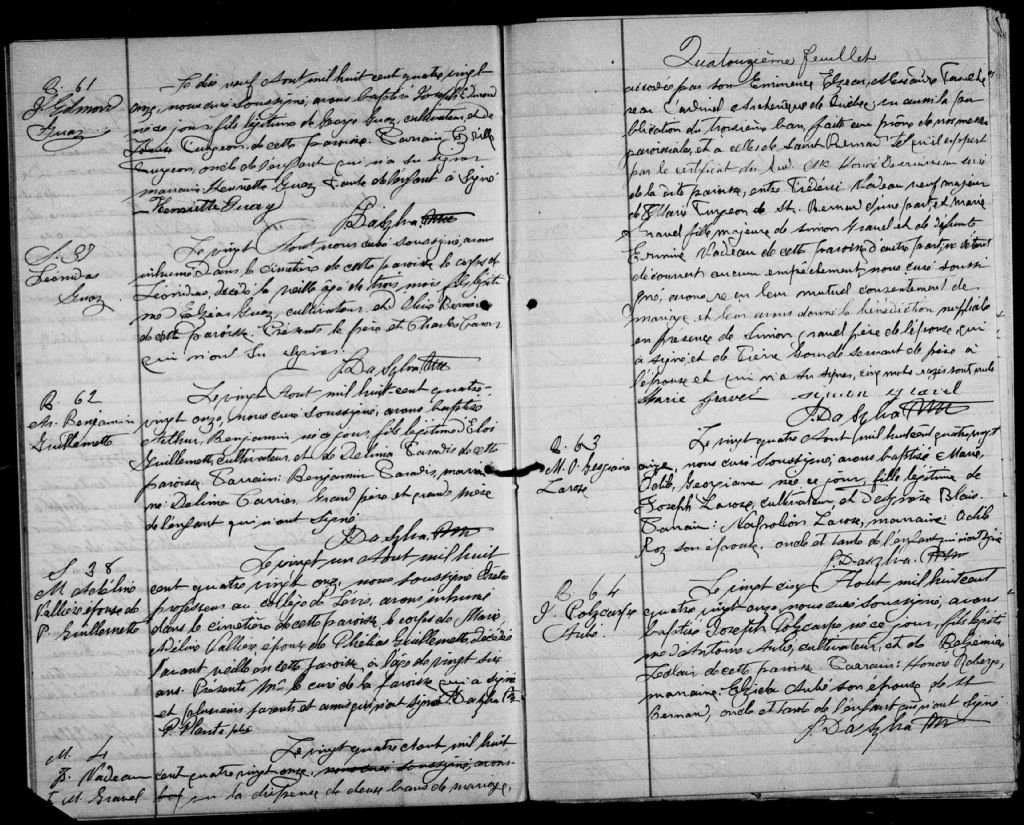 B. 61
J. Edmond
Guay
Le dix neuf Aout mil huit cent quatre vingt
onze, nous curé soussigné, avons baptisé Joseph Edmond
né ce jour, fils légitime de George Guay, cultivateur, et de
Turgeon de cette paroisse. Parrain
Turgeon, oncle de l'enfant qui n'a su signer
marraine: Henriette Guay Tante de l'enfant a signé
Henriette Guay
J. DaSylva Ptre
S. 37
Léonidas
Guay
Le vingt Aout nous curé soussigné, avons
inhumé dans le cimetière de cette paroisse le corps de
Léonidas, décédé la veille agé de trois mois fils légiti
me Guay, cultivateur, et
de cette paroisse. Présents le père et Charles
qui n'ont su signer.
J. DaSylva Ptre
B. 62
Ar. Benjamin
Guillemette
Le vingt Aout mil huit cent quatre-
vingt onze, nous curé soussigné, avons baptisé
Arthur, Benjamin né ce jour, fils légitime d'Eloi
Guillemette, cultivateur, et de Delima Paradis de cette
paroisse. Parrain: Benjamin Paradis, marrai
ne: Delima Carrier Grand père et grande mère
de l'enfant qui n'ont signé
J. DaSylva Ptre
S. 38
M. Adeline
Vallière épouse de
P. Guillemette
Le vingt un Aout mil huit
cent quatre vingt onze, nous soussigné Prêtre
professeur au collège de Lévis, avons inhumé
dans le cimetière de cette paroisse le corps de Marie,
Adeline épouse de Philias Guillemette, décédée
l'avant veille en cette paroisse, à l'age de vingt six
ans. Presents Mr. le curé de la paroisse qui a signé
et plusieurs parents et amis qui n'ont signé. DaSylva Ptre
P. Plante ptre
M. 4
F. Nadeau
& M. Gravel
Le vingt quatre Aout mil huit
cent quatre vingt onze, nous curé soussigné, avons
vu la dispense de deux bans de mariage,
Quatorzième feuillet
accordée par son Eminence Elzear, Alexandre Tasche
reau Cardinal Archevêque de Québec; vu aussi la pu
blication du troisième ban, faite au prône de nos messes
paroissiales, et a celles de Saint Bernard tel qu'il appert
par le certificat du Rvd. Mr Honoré Desruisseaux curé
de la dite paroisse, entre Nadeau veuf majeur
de Marie Turgeon de St. Bernard d'une part et Marie
Gravel fille majeure de Simon Gravel et de défunte
Nadeau de cette paroisse d'autre part, ne s'étant
découvert aucun empêchement, nous curé soussi
gné, avons reçu leur mutuel consentement de
mariage et leur avons donné la bénédiction nuptiale
en présence de Simon Gravel père de l'épouse qui
a signé et de Pierre servant de père à
l'épouse et qui n'a su signer, cinq mots rayés sont nuls
Marie Gravel Simon Gravel
J. DaSylva Ptre
B. 63
M. O. Georgiana
Larose
Le vingt quatre Aout mil huit cent quatre vingt
onze, nous curé soussigné, avons baptisé Marie,
Odile, Georgiana née ce jour, fille légitime de
Joseph Larose, cultivateur, et Blais.
Parrain: Napoléon Larose, marraine: Odile
Roy son épouse, oncle et tante de l'enfant qui n'ont signé
J. DaSylva Ptre
B. 64
J. Polycarpe
Aubé
Le vingt cinq Aout mil huit cent
quatre vingt onze, nous curé soussigné, avons
baptisé Joseph Polycarpe né ce jour, fils légiti
me d'Antoine Aubé, cultivateur, et de
de cette paroisse. Parrain: Honoré Roberge,
marraine: Aubé son épouse de St
Bernard, oncle et tante de l'enfant qui n'ont signé
J. DaSylva Ptre